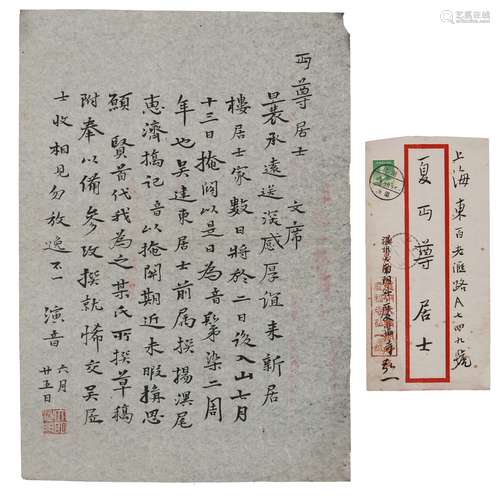 丏尊居士 文席
曩承遠送深感厚誼来新居
樓居士家數日將於二日後入山七月
十三日掩関以是日為音鬀染二周
年也吴建東居士前属撰揚溟尾
惠濟橋記音以掩関期近未暇構思
願 賢首代我為之某氏所撰草稿
附奉以備參攷撰就希交吴居
士收相見勿放逸不一
演音
六月
廿五日
上海東百老匯路A七四九號
夏丏尊居士
弘一